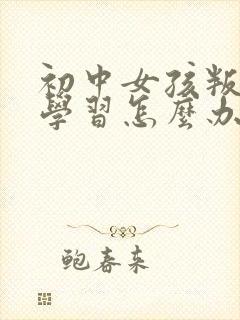 初中女孩叛
學習怎麼办
鲍春来